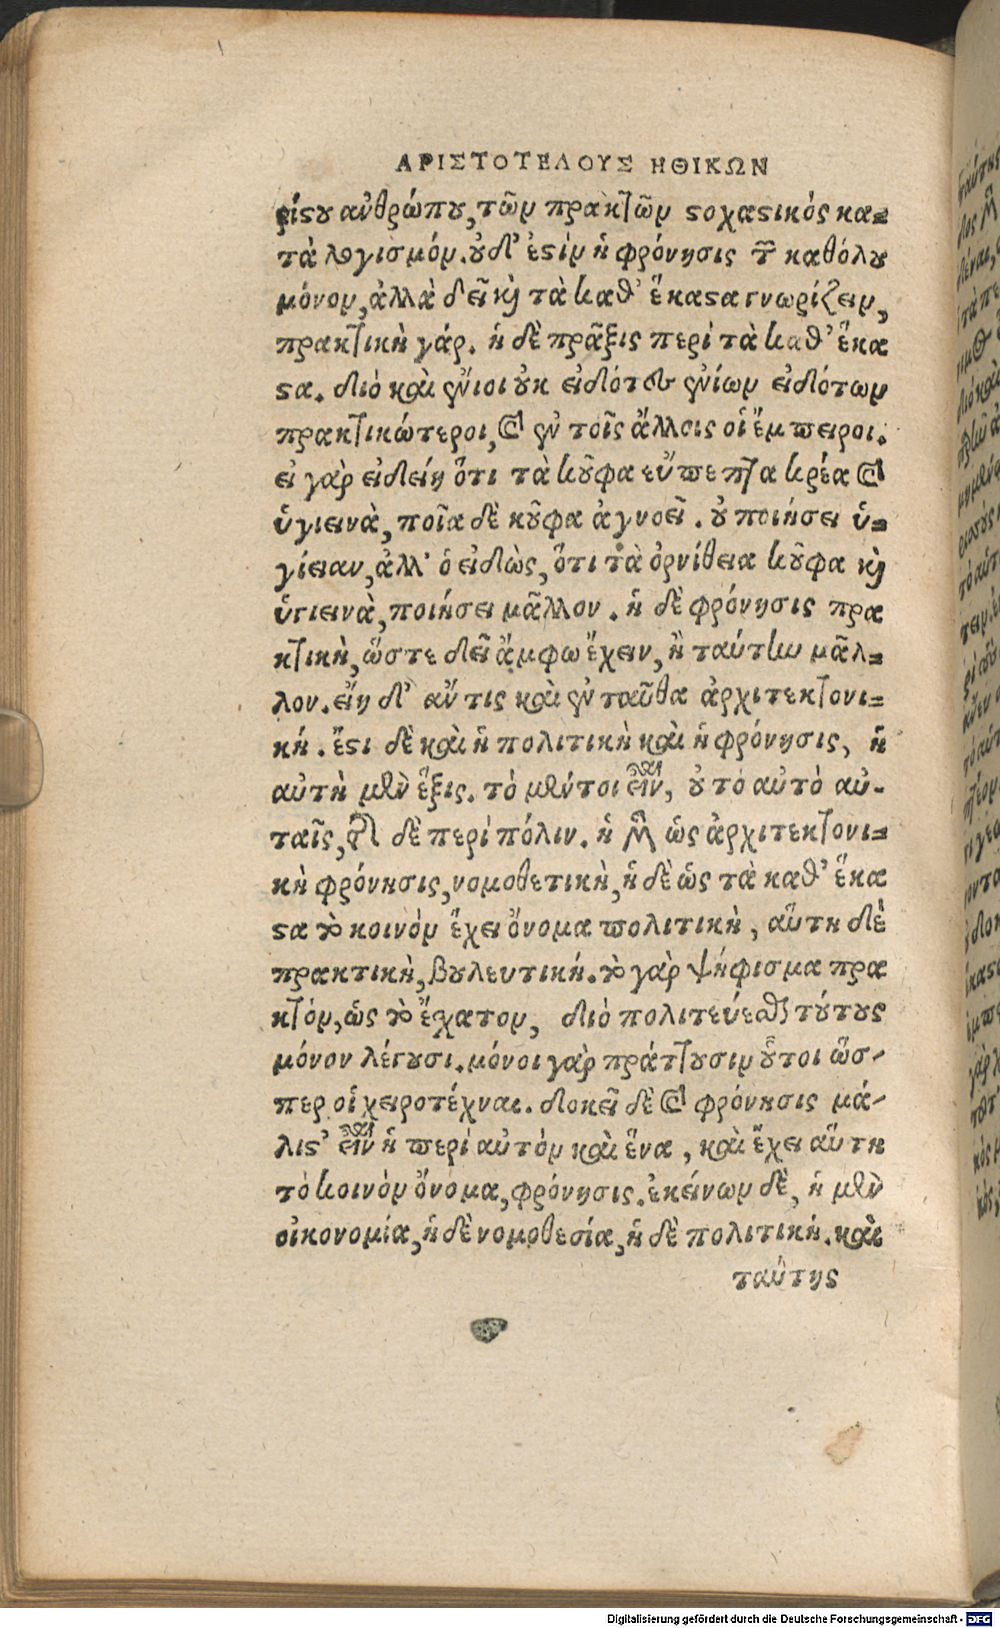 ΑΡΙΣΤΟΤΕΛΟΥΣ ΗΘΙΚΩΝ
ρίϛου ἀνθρώπου, τῶν πρακτῶν ϛοχαϛικός κα-
τὰ λογισμόν. οὐδ' ἐϛὶν ἡ φρόνησις τῶν καθόλου
μόνον, ἀλλὰ δεῖ καὶ τὰ καθ' ἕκαϛα γνωρίζειν,
πρακτικὴ γάρ. ἡ δὲ πρᾶξις περὶ τὰ καθ' ἕκα
ϛα. διὸ καὶ ἔνιοι οὐκ εἰδότες ἐνίων εἰδότων
πρακτικώτεροι, καὶ ἐν τοῖς ἄλλοις οἱ ἔμπειροι.
εἰ γὰρ εἰδείη ὅτι τὰ κοῦφα εὔπεπτα κρέα καὶ
ὑγιεινὰ, ποῖα δὲ κοῦφα ἀγνοεῖ. οὐ ποιήσει ὑ-
γίειαν, ἀλλ' ὁ εἰδὼς, ὅτι τὰ ὀρνίθεια κοῦφα καὶ
ὑγιεινὰ, ποιήσει μᾶλλον. ἡ δὲ φρόνησις πρα
κτικὴ, ὥστε δεῖ ἄμφω ἔχειν, ἢ ταύτην μᾶλ-
λον. εἴη δ' αὔ τις καὶ ἐνταῦθα ἀρχιτεκτονι-
κή. ἔϛι δὲ καὶ ἡ πολιτικὴ καὶ ἡ φρόνησις, ἡ
αὐτὴ μὲν ἕξις. τὸ μέντοι εἶναι, οὐ τὸ αὐτὸ αὐ-
ταῖς, τῆς δὲ περὶ πόλιν. ἡ μὲν ὡς ἀρχιτεκτονι-
κὴ φρόνησις, νομοθετικὴ, ἡ δὲ ὡς τὰ καθ' ἕκα
ϛα τὸ κοινὸν ἔχει ὄνομα πολιτικὴ, αὕτη δὲ
πρακτικὴ, βουλευτική. τὸ γὰρ ψήφισμα πρα
κτόν, ὡς τὸ ἔσχατον, διὸ πολιτεύεσθαι τούτους
μόνον λέγουσι. μόνοι γὰρ πράττουσιν οὗτοι ὥσ-
περ οἱ χειροτέχναι. δοκεῖ δὲ καὶ φρόνησις μά-
λιϛ' εἶναι ἡ περὶ αὐτὸν καὶ ἕνα, καὶ ἔχει αὕτη
τὸ κοινὸν ὄνομα, φρόνησις. ἐκείνων δὲ, ἡ μὲν
οἰκονομία, ἡ δὲ νομοθεσία, ἡ δὲ πολιτική. καὶ
ταύτης
Digitalisierung gefördert durch die Deutsche Forschungsgemeinschaft - DFG